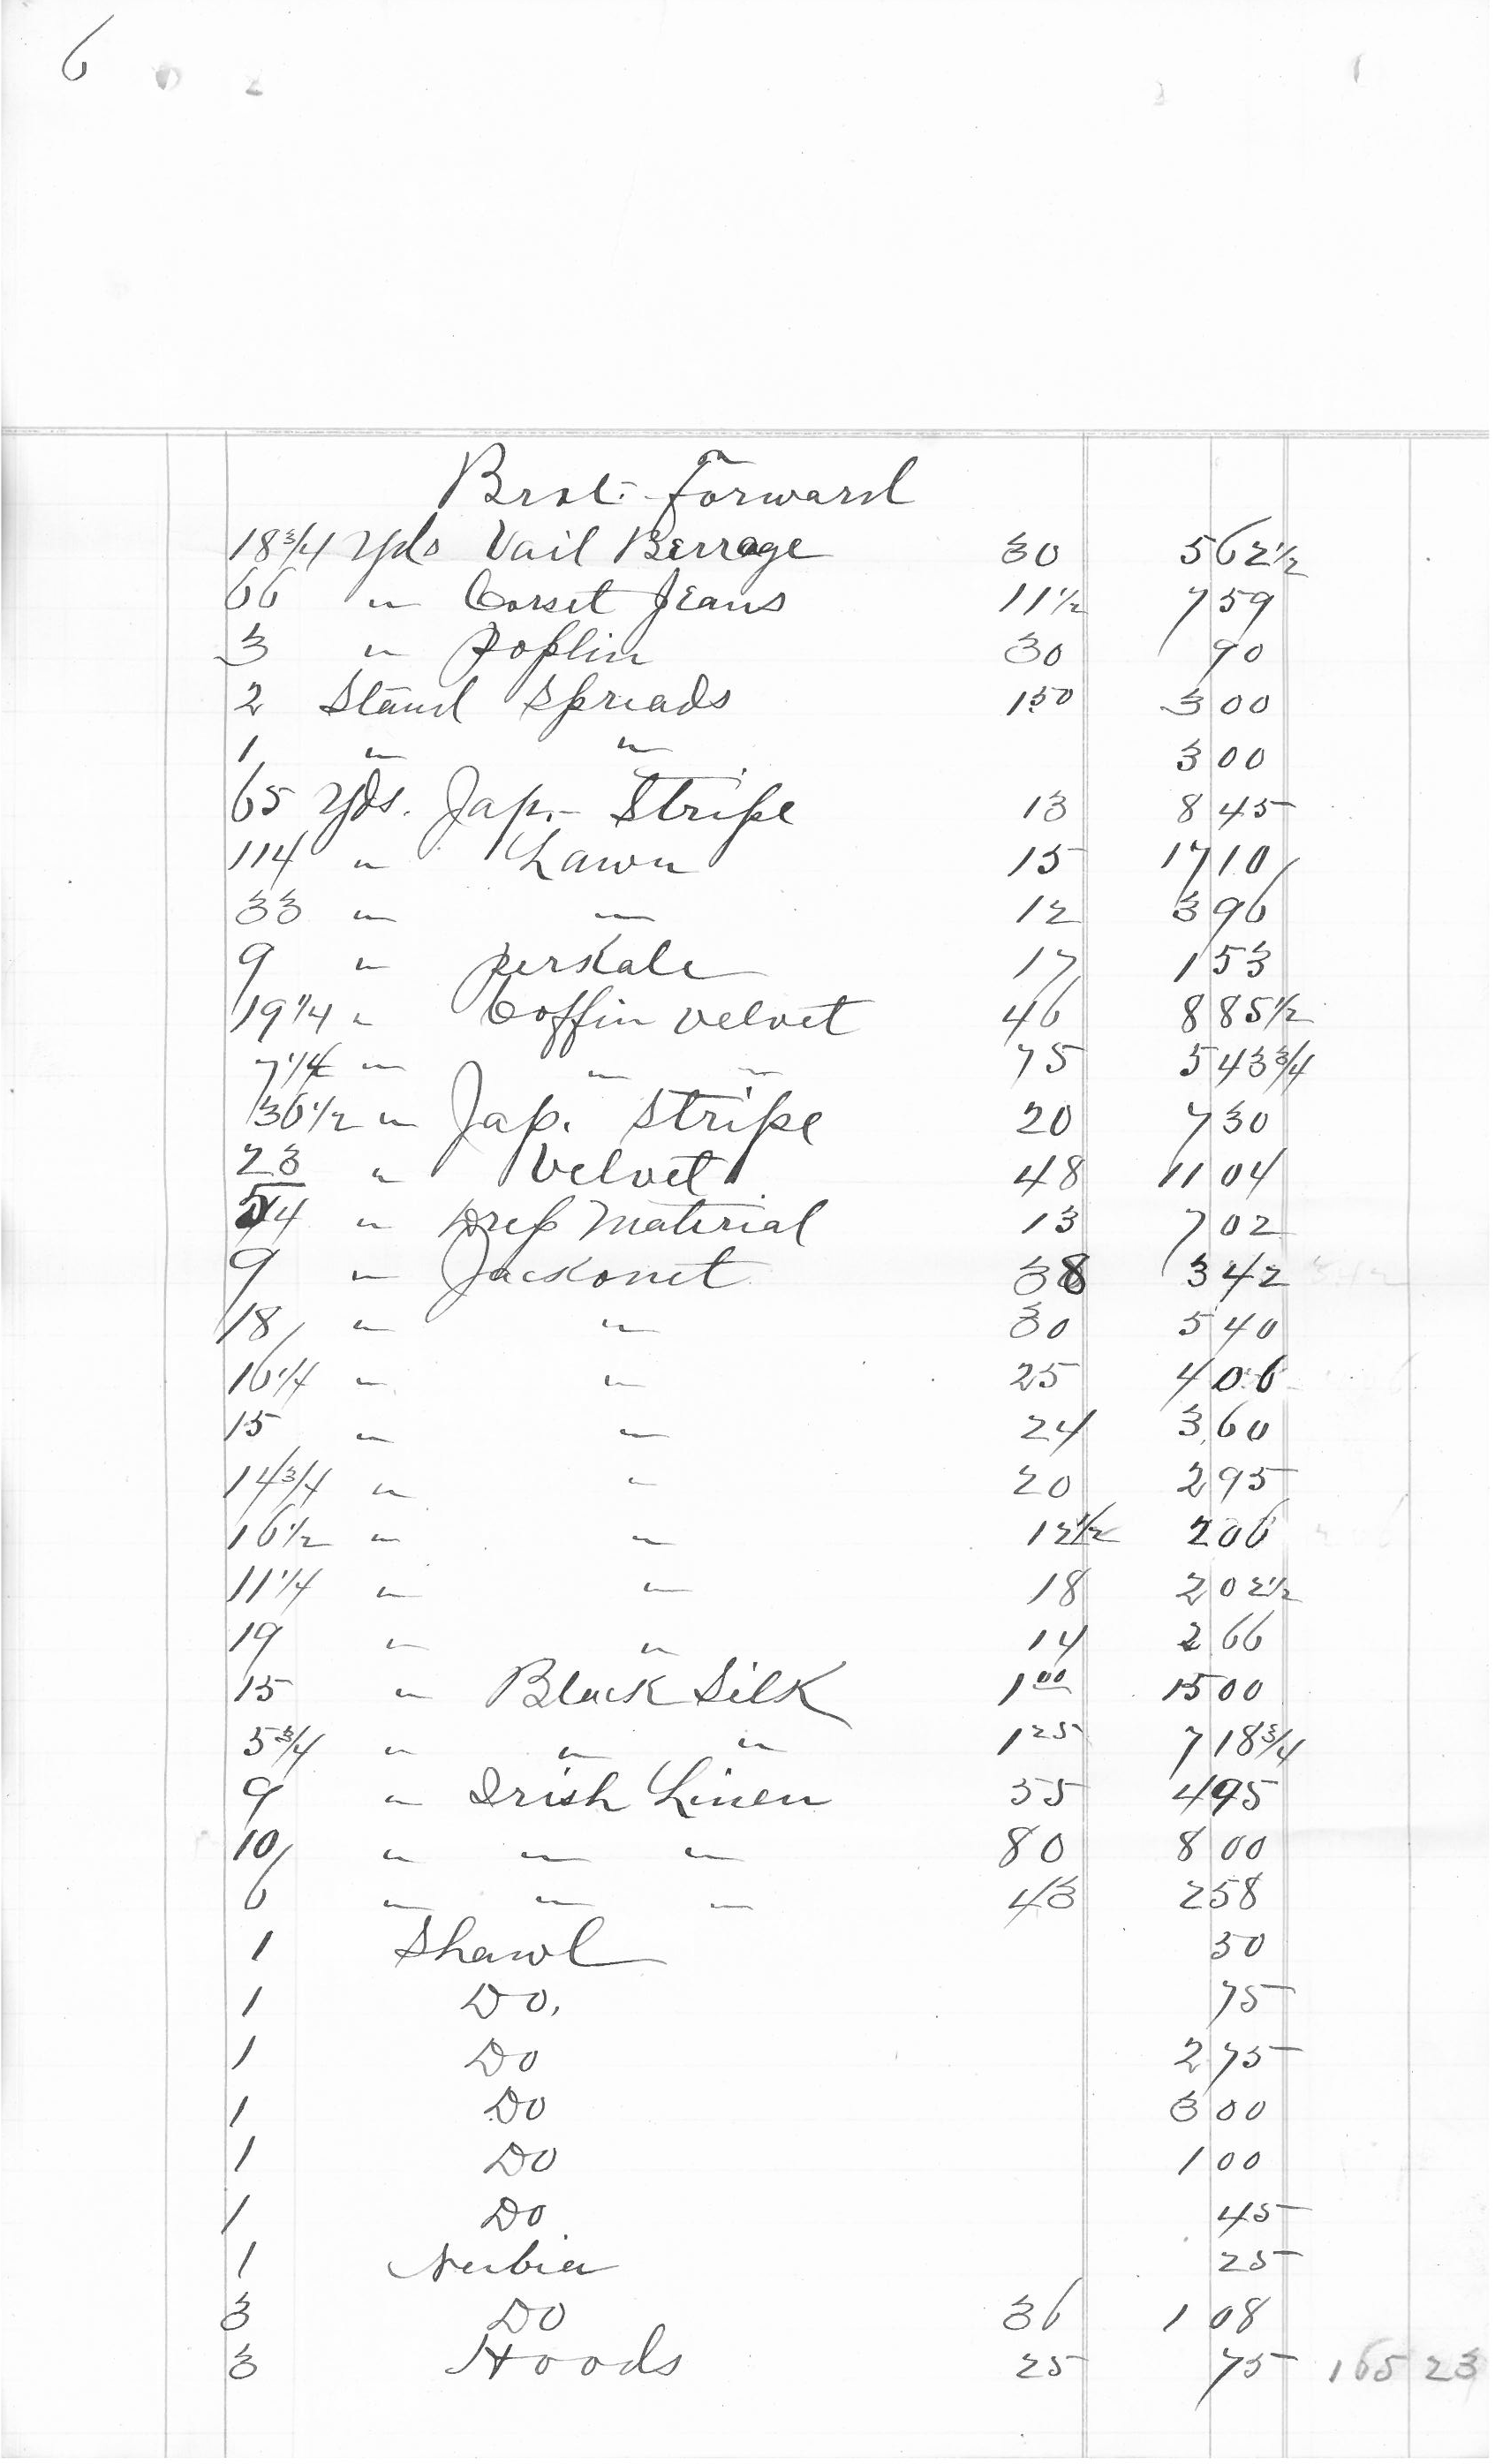 6
Brot. Forward
18 3/4 Yds Vail Berrage 30 5 62 1/2
66 " Corset Jeans 11 1/2 7 59
3 " Poplin 30 90
2 Stand Spreads 1 50 3 00
1 " " 3 00
65 Yds. Jap. Stripe 13 8 45
114 " Lawn 15 17 10
33 " " 12 3 96
9 " perkale 17 1 53
19 1/4 " Coffin velvet 46 8 85 1/2
7 1/4 " " " 75 5 43 3/4
36 1/2 " Jap. Stripe 20 7 30
23 " Velvet 48 11 04
54 " Dress Material 13 7 02
9 " Jackonet 38 3 42
18 " " 30 5 40
16 1/4 " " 25 4 06
15 " " 24 3 60
14 3/4 " " 20 2 95
16 1/2 " " 12 1/2 2 06
11 1/4 " " 18 2 02 1/2
19 " " 14 2 66
15 " Black Silk 1 00 15 00
5 3/4 " " " 1 25 7 18 3/4
9 " Irish Linen 55 4 95
10 " " " 80 8 00
6 " " " 43 2 58
1 Shawl 50
1 Do. 75
1 Do 2 75
1 Do 3 00
1 Do 1 00
1 Do 45
1 Nubia 25
3 Do 36 1 08
3 Hoods 25 75 165 23